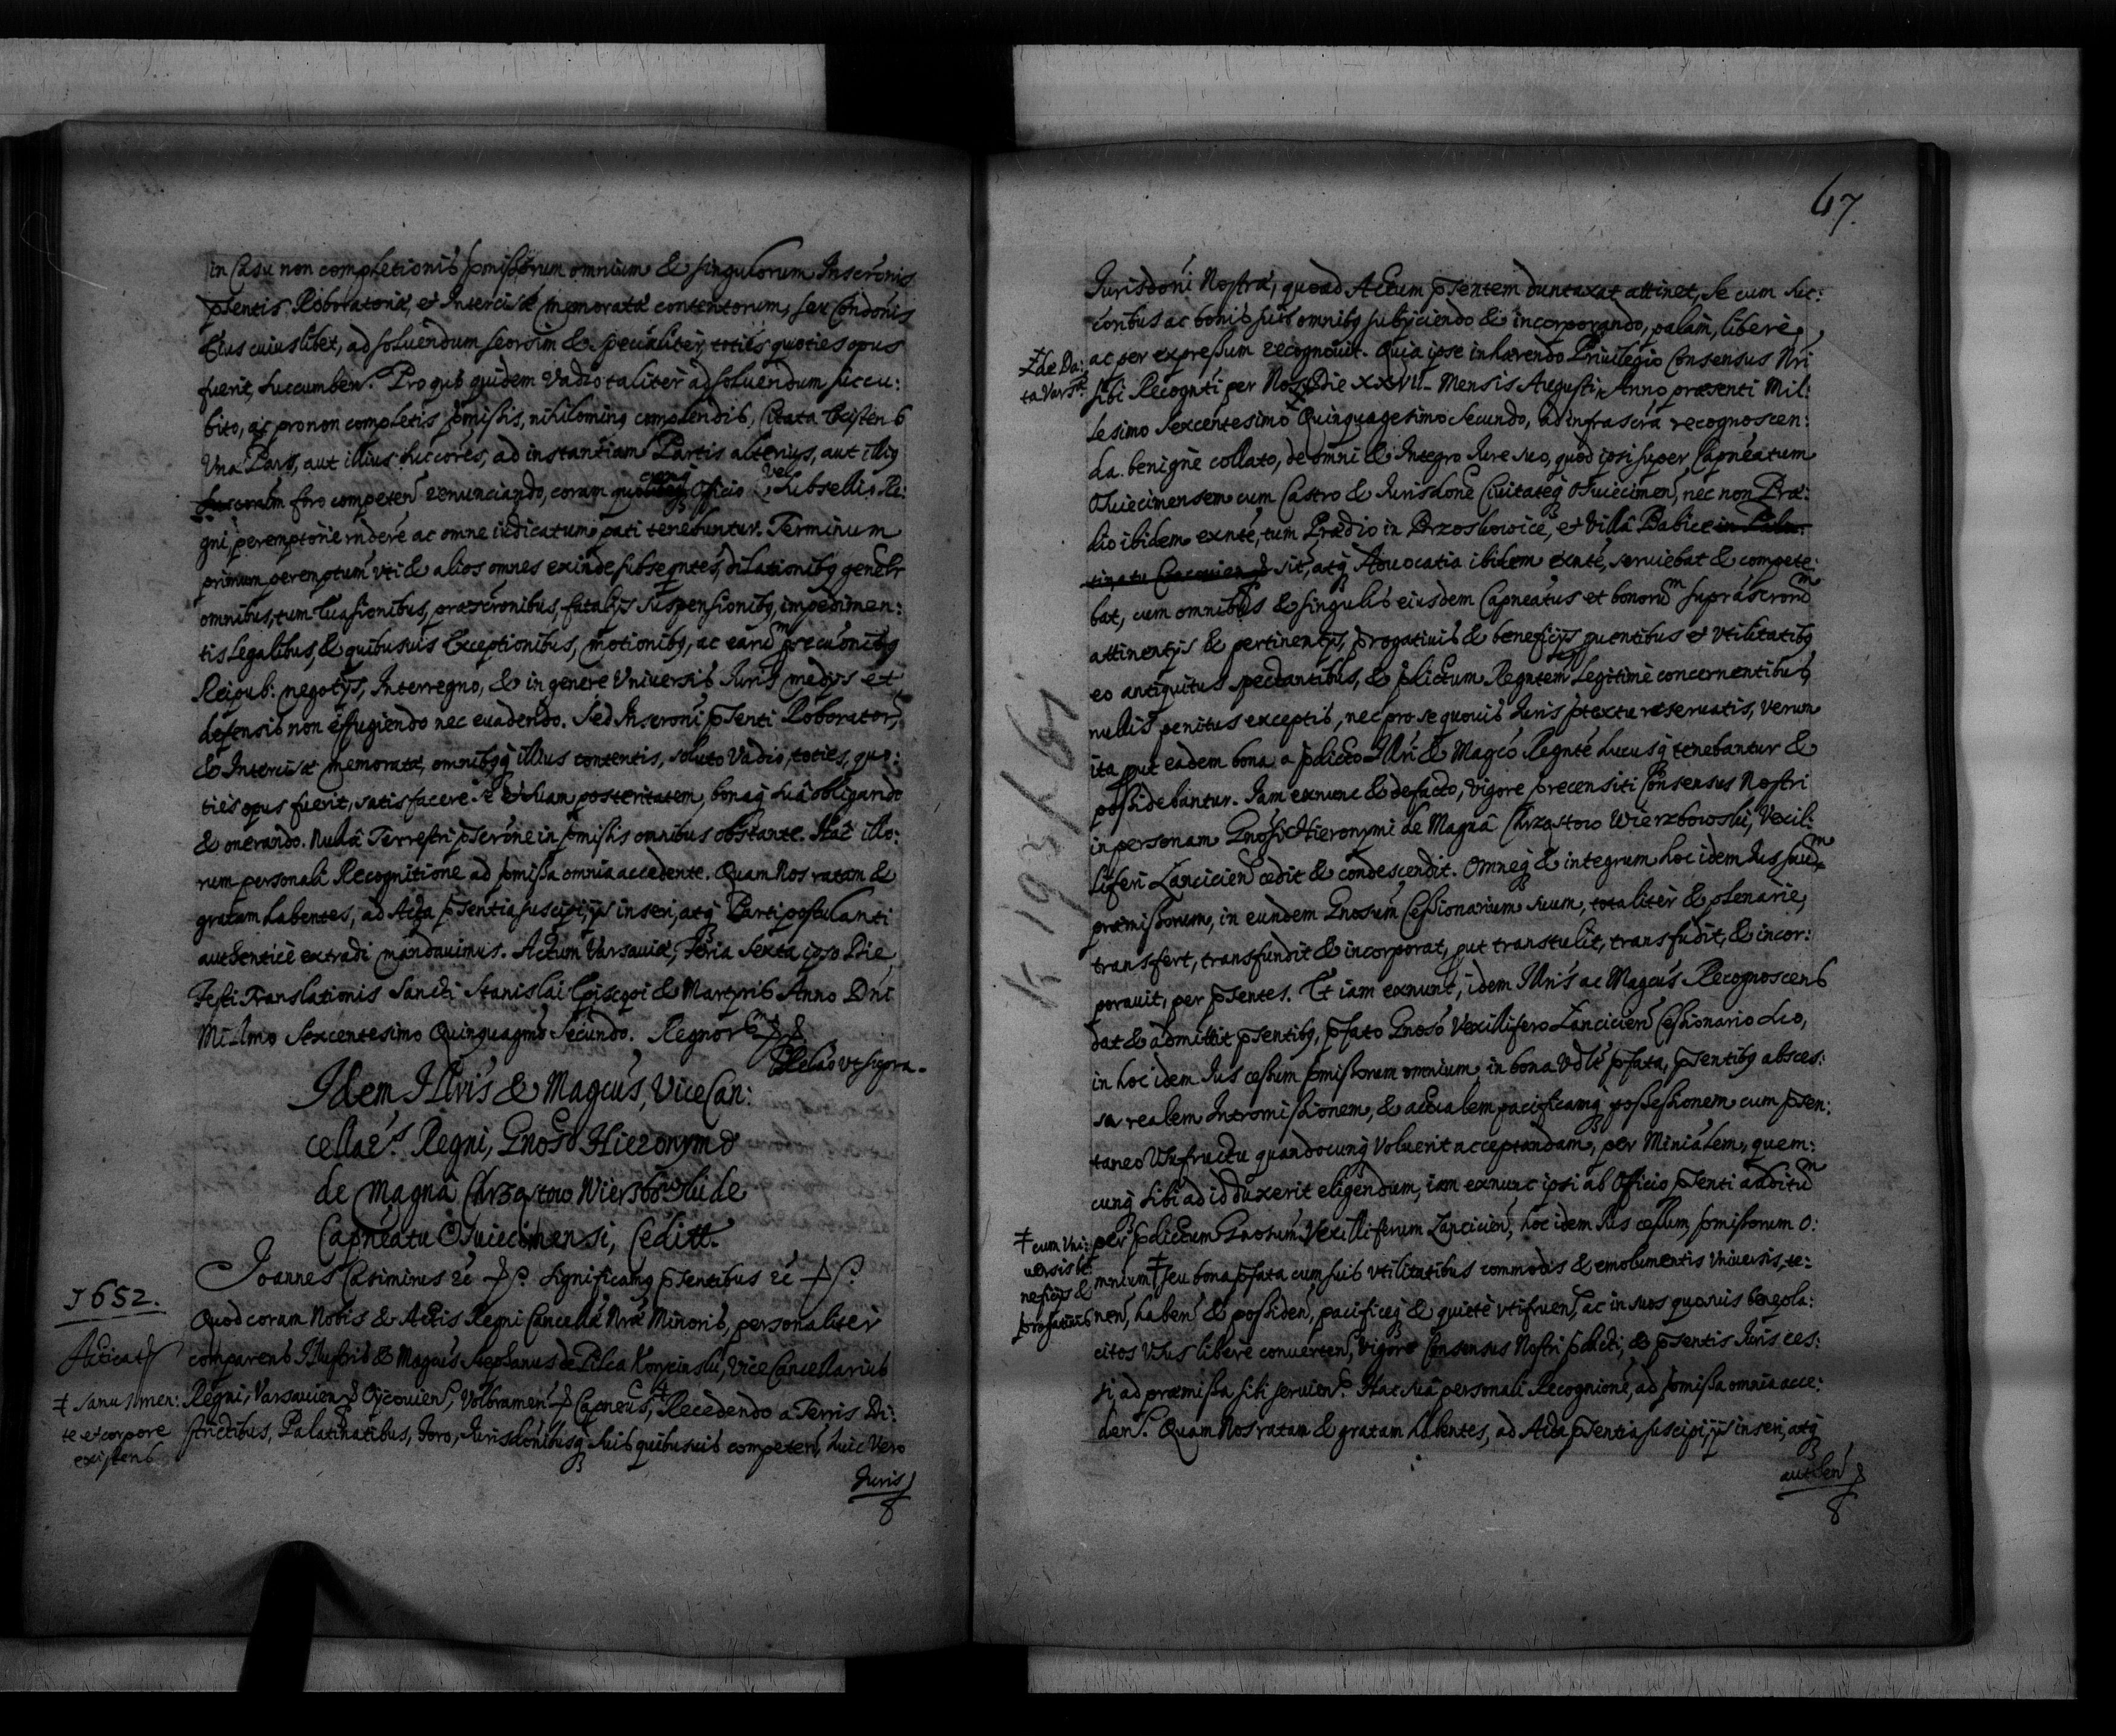 in Casu non completionis pmissorum omnium & singulorum Inscrōnis
pntis Roboratoriæ, et Intercisæ memoratæ contentorum, seu Condōnis
Eius cuiuslibet, ad soluendum seorsim & specialiter, toties quoties opus
fuerit, succumben. Pro quo quidem Vadio taliter ad soluendum succu:
bito, ac pro non completis pmissis, nihilominq complendis, Citata existens
Una Pars, aut illius succōres, ad instantiam Partis alterius, aut illiq
foro competen renunciando, coram quouis Officio vel Subsellio Re:
gni, peremptorie rndere ac omne iudicatum pati tenebuntur. Terminum
primum peremptum vti & alios omnes exinde subseqntes, dilationibq genelr
omnibus, tum Euasionibus, præscrōnibus, fatalijs suspensionibq, impedimen:
tis legalibus, & quibusuis Exceptionibus, motionibq, ac earum psecuōnibq
Reipub: negotijs, Interregno, & in genere Vniuersis Iuris medijs et
defensis non effugiendo nec euadendo. Sed Inscrōni pnti Roborator,
& Intercisæ memoratæ, omnibqq illius contentis, soluto Vadio, toties, quo:
ties opus fuerit, satisfacere se et suam posteritatem, bonaq sua obligando
& onerando. Nullâ Terrestri pscrōne in pmissis omnibus obstante. Hac illo:
rum personali Recognitione ad pmissa omnia accedente. Quam Nos ratam &
gratam habentes, ad Acta pntia suscipi, ijs inseri, atq Parti postulanti
authentice extradi mandauimus. Actum Varsauiæ, Feria Sexta ipso Die
Festi Translationis Sancti Stanislai Episcopi & Martyris Anno Dni
Millmo Sexcentesimo Quinquagmo Secundo. Regnor
Relao vt supra.
Idem Illris & Magcus, ViceCan:
cellar. Regni, Gnoso Hieronymo
de Magnâ Chrząstow Wierzbowski de
Capneatu Osuiecimensi, Cedit.
1652.
Ioannes Casimirus &c Significamq pntibus &c
Quod coram Nobis & Actis Regni Cancellæ Nræ Minoris, personaliter
comparens Illustris & Magcus Stephanus de Pilca Korycinski, ViceCancellarius
‡ sanus men:
te et corpore
existens
Regni, Varsauien Oycouien, Volbramen Capneus, ‡ Recedendo a Terris Di:
strictibus, Palatinatibus, Foro, Iurisdōnibusq suis quibusuis competen, huic Vero
Iuris
67.
Iurisdōni Nostræ, quoad Actum pntem duntaxat attinet, se cum suc:
coribus ac bonis suis omnibq subijciendo & incorporando, palam, libere,
‡ de Da:
ta Vars
ac per expressum recognouit. Quia ipse inhærendo Priuilegio Consensus Nri
sibi Recognti per Nos, Die XXVII Mensis Augusti Anno præsenti Mil:
lesimo Sexcentesimo Quinquagesimo Secundo, ad infrascra recognoscen:
da benigne collato, de omni & Integro Iure suo, quod ipsi super Capneatum
Osuiecimensem cum Castro & Iurisdōne Ciuitateq Osuiecimen, nec non Præ:
dio ibidem exnte, tum Prædio in Brzoskowice, et Villâ Babice in Pala:
tinatu Cracouien sit, atq Aduocatia ibidem exnte, seruiebat & compete:
bat, cum omnibus & singulis eiusdem Capneatus et bonorum suprascrorum
attinentijs & pertinentijs, progatiuis & beneficijs puentibus et vtilitatibq
eo antiquitus spectantibus, & pdictum Regntem legitime concernentibus,
nullis penitus exceptis, nec pro se quouis Iuris ptextu reseruatis, verum
ita put eadem bona a pdicto Illri & Magco Regnte hucusq tenebantur &
possidebantur. Iam exnunc & defacto, vigore precensiti Consensus Nostri
in personam Gnosi Hieronymi de Magnâ Chrząstow Wierzbowski, Vexil:
liferi Lancicien cedit & condescendit. Omneq & integrum hoc idem Ius suum
præmissorum, in eundem Gnosum Cessionarium suum, totaliter & plenarie,
transfert, transfundit & incorporat, put transtulit, transfudit, & incor:
porauit, per pntes. Et iam exnunc, idem Illris ac Magcus Recognoscens
dat & admittit pntibq, pfato Gnoso Vexillifero Lancicien Cessionario suo,
in hoc idem Ius cessum pmissorum omnium, in bona vdlt pfata, pntibq absces:
sa realem Intromissionem, & actualem pacificamq possessionem cum psen:
taneo Vsufructu quandocunq voluerit acceptandam, per Minialem, quem:
cunq sibi ad id duxerit eligendum, iam exnunc ipsi ab Officio pnti additum
‡ cum Vni:
uersis be
neficijs &
progatiuis
per pdictum Gnosum Vexilliferum Lancicien, hoc idem Ius cessum, pmissorum o:
mnium ‡ seu bona pfata cum suis vtilitatibus commodis & emolumentis Vniuersis, te:
nen, haben & possiden, pacificeq & quiete vtifruen, ac in suos quosuis benepla:
citos Vsus libere conuerten, vigore Consensus Nostri pdicti, & pntis Iuris ces:
si, ad præmissa sibi seruien. Hac suâ personali Recognione, ad pmissa omnia acce:
den. Quam Nos ratam & gratam habentes, ad Acta pntia suscipi, ijs inseri, atq
authen